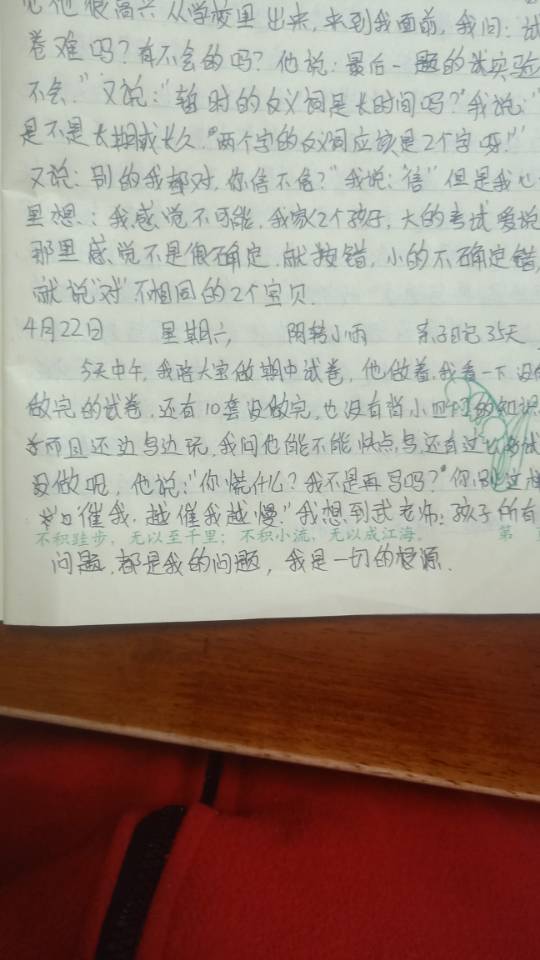 他很高兴从学校里出来,来到我面前,我问:试
卷难吗?有不会的吗?他说:最后一题的试实验
不会."又说:"暂时的反义词是长时间吗?"我说:"
是不是长期或长久."两个字的反义词应该是2个字呀!"
又说:别的我都对,你信不信?"我说:信"但是我心
里想:我感觉不可能,我家2个孩子,大的考试爱说
那里感觉不是很确定.就按错,小的不确定错,
就说"对"不相同的2个宝贝.
4月22日 星期六 阴转小雨 亲子日记35天
今天中午,我陪大宝做期中试卷,他做着,我看一下没
做完的试卷.还有10套没做完,也没有背小四门的知识
而且还边写边玩,我问他能不能快点写,还有这么多试
没做呢,他说:"你慌什么?我不是再写吗?"你别这样
催我.越催我越慢."我想到武老师:孩子所有
不积跬步,无以至千里;不积小流,无以成江海。 第
问题.都是我的问题,我是一切的根源.